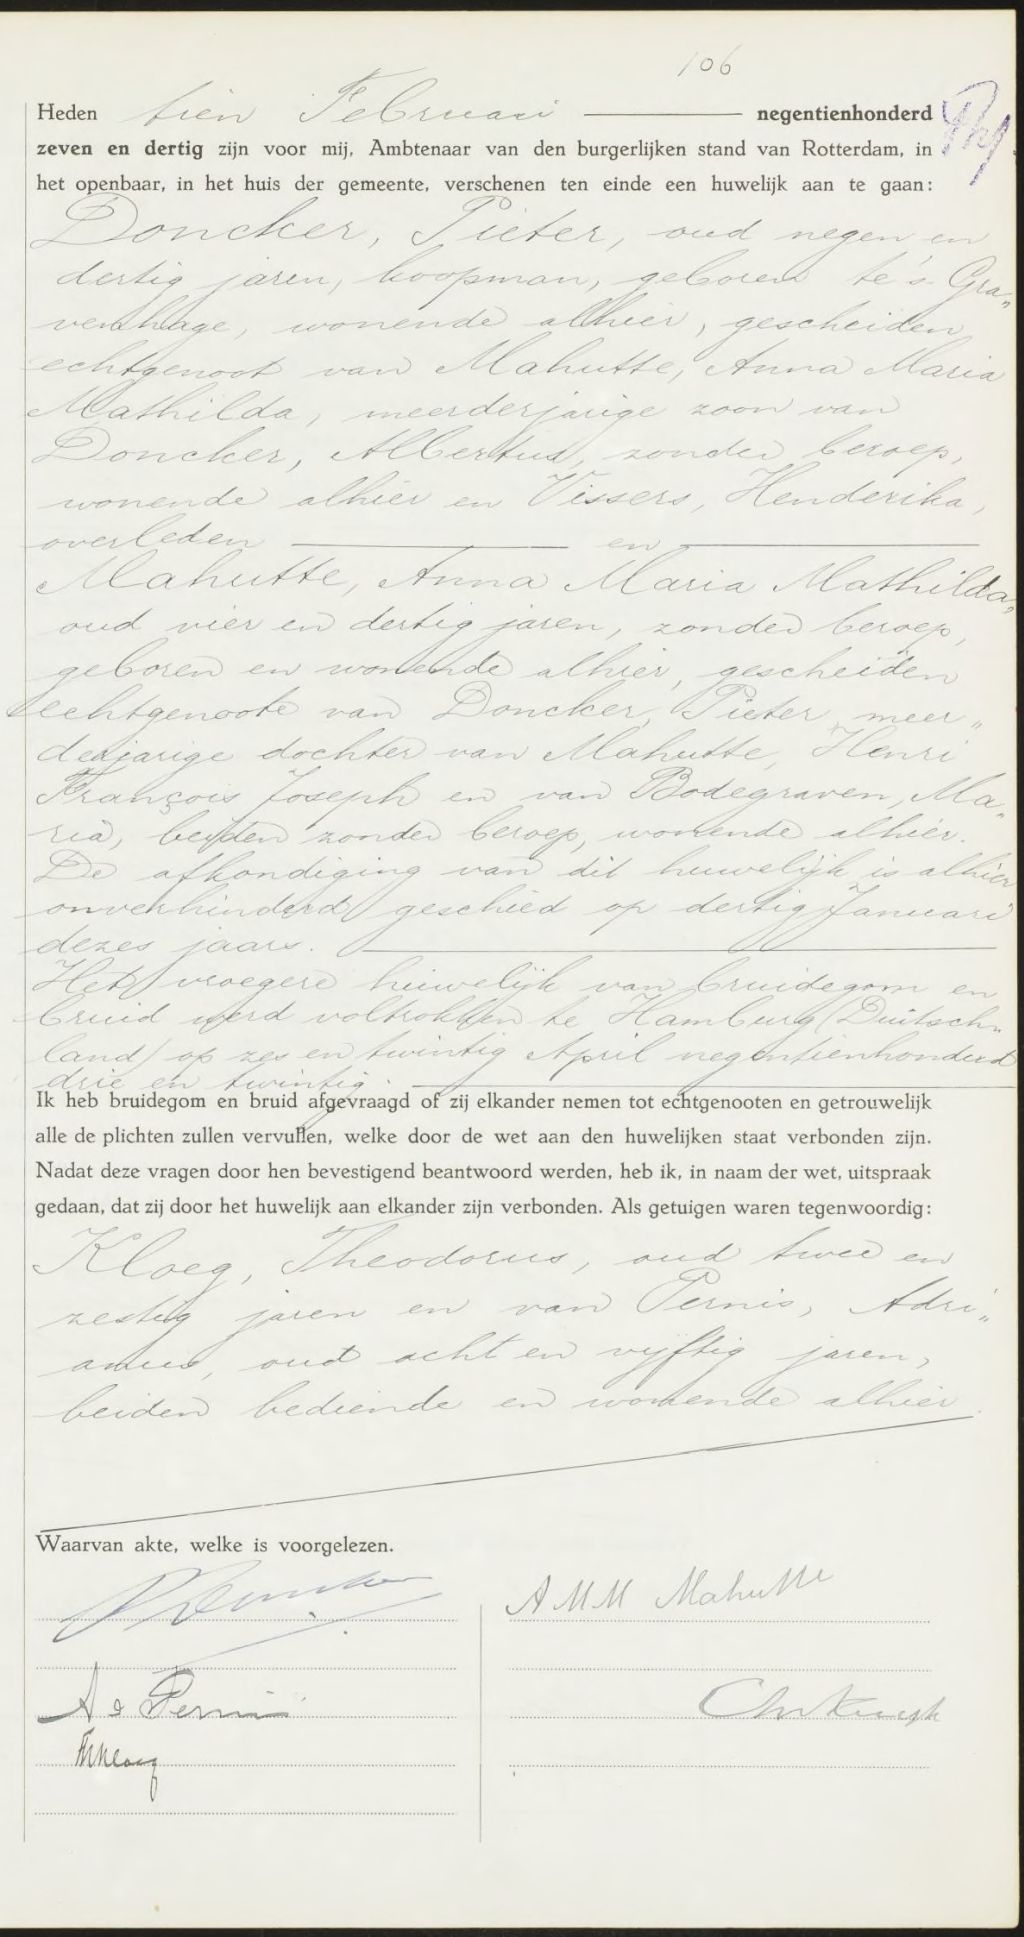 106
Heden tien Februari negentienhonderd
zeven en dertig zijn voor mij, Ambtenaar van den burgerlijken stand van Rotterdam, in
het openbaar, in het huis der gemeente, verschenen ten einde een huwelijk aan te gaan:
Doncker, Pieter, oud negen en
dertig jaren, koopman, geboren te 's Gra„
venhage, wonende alhier, gescheiden
echtgenoot van Mahutte, Anna Maria
Mathilda, meerderjarige zoon van
Doncker, Albertus, zonder beroep,
wonende alhier en Vissers, Henderika,
overleden en
Mahutte, Anna Maria Mathilda,
oud vier en dertig jaren, zonder beroep,
geboren en wonende alhier, gescheiden
echtgenoote van Doncker, Pieter, meer„
derjarige dochter van Mahutte, Henri
François Joseph en van Bodegraven, Ma„
ria, beiden zonder beroep, wonende alhier.
De afkondiging van dit huwelijk is alhier
onverhinderd geschied op dertig Januari
dezes jaars.
Het vroegere huwelijk van bruidegom en
bruid werd voltrokken te Hamburg (Duitsch„
land) op zes en twintig April negentienhonderd
drie en twintig.
Ik heb bruidegom en bruid afgevraagd of zij elkander nemen tot echtgenooten en getrouwelijk
alle de plichten zullen vervullen, welke door de wet aan den huwelijken staat verbonden zijn.
Nadat deze vragen door hen bevestigend beantwoord werden, heb ik, in naam der wet, uitspraak
gedaan, dat zij door het huwelijk aan elkander zijn verbonden. Als getuigen waren tegenwoordig:
Kloeg, Theodorus, oud twee en
zestig jaren en van Pernis, Adri„
anus, oud acht en vijftig jaren,
beiden bediende en wonende alhier.
Waarvan akte, welke is voorgelezen.
P Doncker
A M M Mahutte
A v Pernis
Th Kloeg